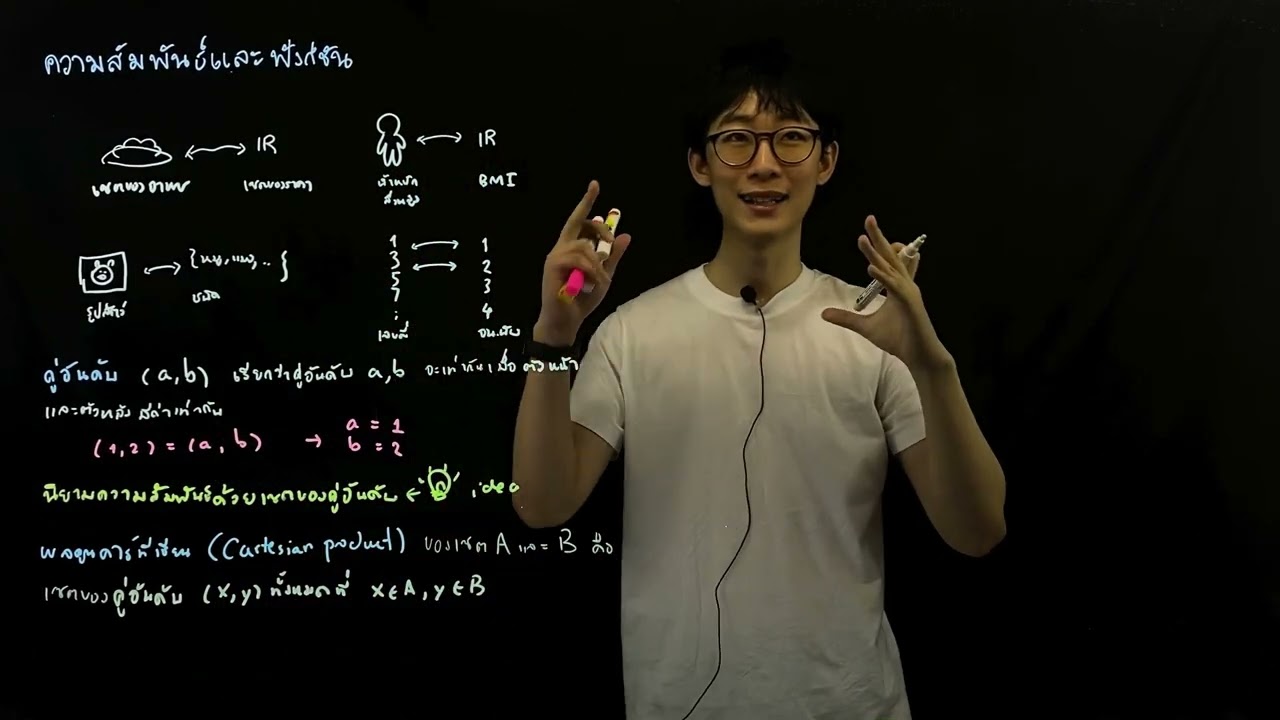 ความสัมพันธ์และฟังก์ชัน
IR
เซตของอาหาร
เซตของราคา
IR
น้ำหนัก
ส่วนสูง
BMI
{หมู, แมว, .. }
รูปสัตว์
ชนิด
1 1
3 2
5 3
7 4
:
เลขคี่
จน.นับ
คู่อันดับ (a,b) เรียกว่าคู่อันดับ a,b จะเท่ากันเมื่อ ตัวหน้า
และตัวหลัง มีค่าเท่ากัน
(1,2) = (a, b) → a = 1
b = 2
นิยามความสัมพันธ์ด้วยเซตของคู่อันดับ ← idea
ผลคูณคาร์ทีเซียน (Cartesian product) ของเซต A และ B คือ
เซตของคู่อันดับ (x,y) ทั้งหมดที่ x ∈ A, y ∈ B